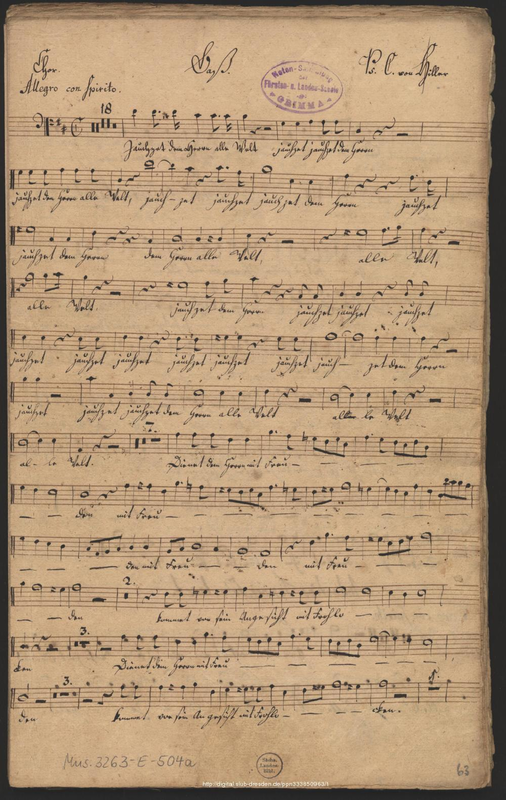 Chor. Baß. Ps. C. von Hiller
Allegro con Spirito.
Noten-Sammlung
der
Fürsten- u. Landes-Schule
zu
GRIMMA
18
Jauchzet dem Herrn alle Welt jauchzet jauchzet dem Herrn
jauchzet dem Herrn alle Welt, jauch- zet jauchzet jauchzet dem Herrn jauchzet
jauchzet dem Herrn dem Herrn alle Welt, alle Welt,
alle Welt. jauchzet dem Herrn jauchzet jauchzet - jauchzet
jauchzet jauchzet jauchzet jauchzet jauchzet jauchzet jauch- zet dem Herrn
jauchzet jauchzet jauchzet dem Herrn alle Welt al- le Welt
al- le Welt. Dienet dem Herrn mit Freu-
den mit Freu-
den mit Freu- den mit Freu-
2.
den kommet vor sein Angesicht mit Frohlo-
3.
cken Dienet dem Herrn mit Freu-
3.
den kommet vor sein Angesicht mit Frohlo- cken.
Mus. 3263-E-504a
63
http://digital.slub-dresden.de/ppn333850963/1